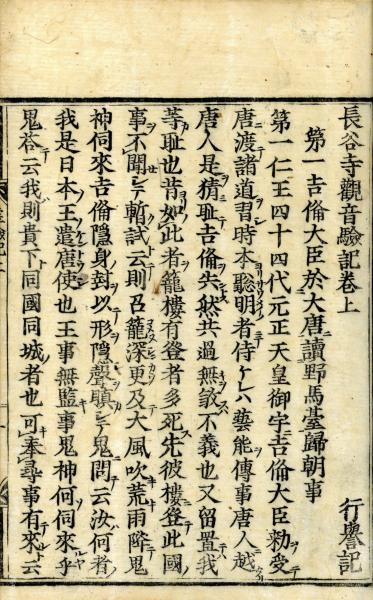 長谷寺觀音驗記卷上　行譽記
第一吉備大臣於大唐讀野馬臺歸朝事
第一仁王四十四代元正天皇御宇吉備大臣勅受テ
唐渡諸道習時本聰明者侍ケレハ藝能傳事唐人越
唐人是猜耻吉備失然共過無敘不義也又留置我
等耻也昔如此者籠樓有登者多死先彼樓登此國
事不聞シテ暫試云則召籠深更及大風吹荒雨降鬼
神伺來吉備隱身封以形隱聲瞋シテ鬼問云汝何者ソ
我是日本王遣唐使也王事無監事鬼神何伺來乎
鬼荅云我則貴下同國同城者也可奉尋事有來云